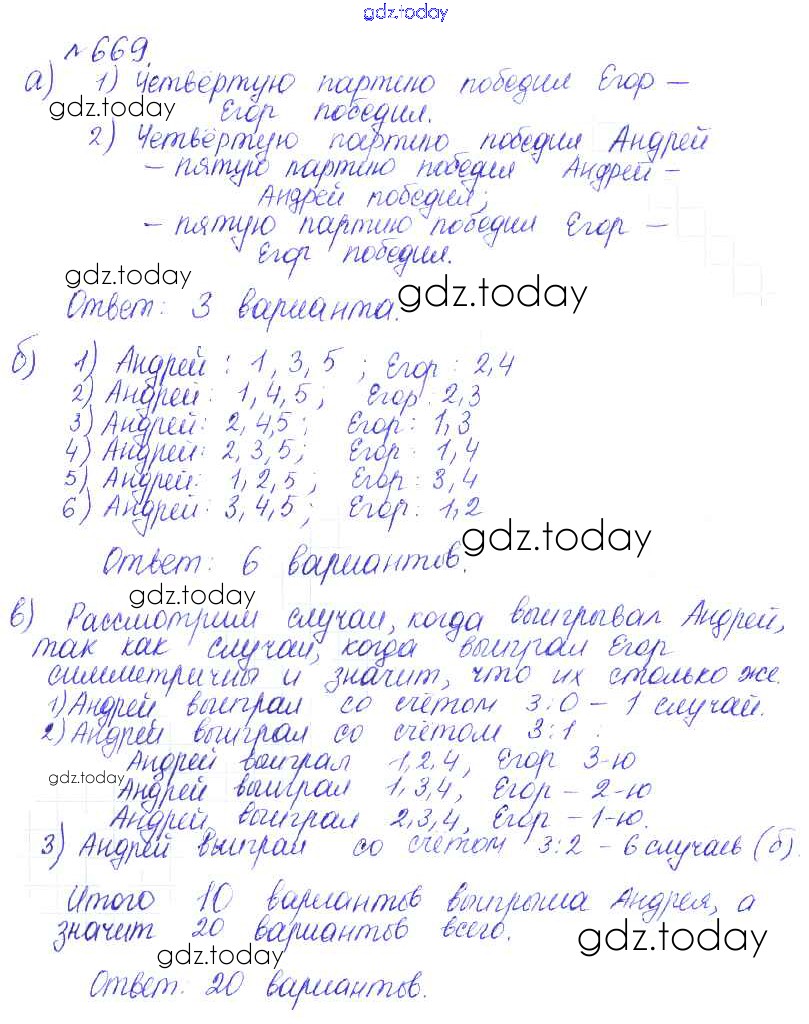 gdz.today
№669.
а) 1) Четвёртую партию победил Егор –
gdz.today
Егор победил.
2) Четвёртую партию победил Андрей
– пятую партию победил Андрей –
Андрей победил;
– пятую партию победил Егор –
Егор победил.
gdz.today
Ответ: 3 варианта.
gdz.today
б) 1) Андрей: 1, 3, 5; Егор: 2,4
2) Андрей: 1,4,5; Егор: 2,3
3) Андрей: 2,4,5; Егор: 1,3
4) Андрей: 2,3,5; Егор: 1,4
5) Андрей: 1,2,5; Егор: 3,4
6) Андрей: 3,4,5; Егор: 1,2
gdz.today
Ответ: 6 вариантов.
gdz.today
в) Рассмотрим случаи, когда выигрывал Андрей,
так как случаи, когда выиграл Егор
симметричны и значит, что их столько же.
1) Андрей выиграл со счётом 3:0 – 1 случай.
2) Андрей выиграл со счётом 3:1:
Андрей выиграл 1,2,4, Егор 3-ю
gdz.today
Андрей выиграл 1,3,4, Егор – 2-ю
Андрей выиграл 2,3,4, Егор – 1-ю.
3) Андрей выиграл со счётом 3:2 – 6 случаев (б).
Итого 10 вариантов выигрыша Андрея, а
значит 20 вариантов всего.
gdz.today
gdz.today
Ответ: 20 вариантов.